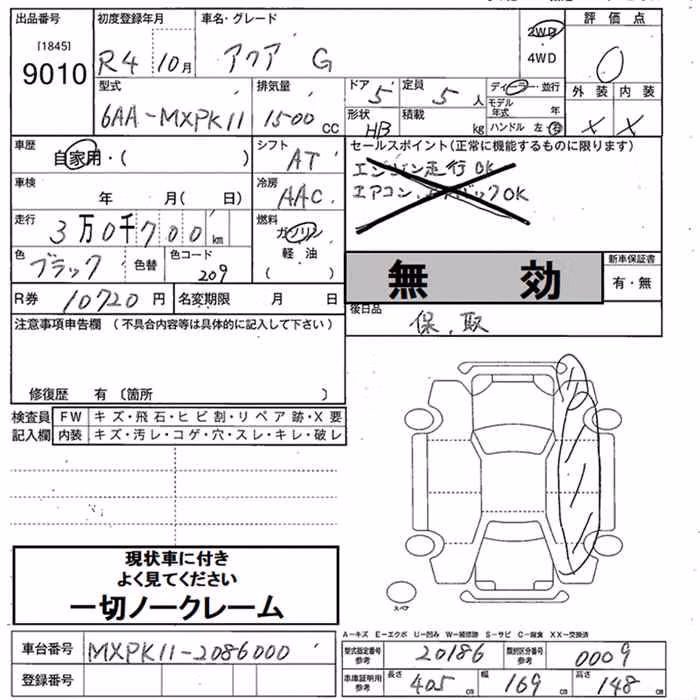 出品番号 初度登録年月 車名・グレード 評価点
[1845]
9010 R4 10月 アクア G 2WD 4WD 0
型式 排気量 ドア 定員 ディーラー・並行 外装 内装
6AA-MXPK11 1500CC 5 5人 モデル年式 年 X X
形状 積載
HB kg ハンドル 左・右
車歴 シフト セールスポイント(正常に機能するものに限ります)
自家用・( ) AT エンジン走行OK
車検 冷房 エアコン、エアバックOK
年 月( 日) AAC
走行 燃料
3万0千700km ガソリン
色 色替 色コード 軽油 新車保証書
ブラック 209 ( ) 無効 有・無
R券 10720円 名変期限 月 日 後日品
注意事項申告欄 (不具合内容等は具体的に記入して下さい) 保、取
修復歴 有〔箇所 〕
検査員 FW キズ・飛石・ヒビ割・リペア跡・X要
記入欄 内装 キズ・汚レ・コゲ・穴・スレ・キレ・破レ
現状車に付き
よく見てください
一切ノークレーム
スペア
A-キズ E-エクボ U-凹み W-補修跡 S-サビ C-腐食 XX-交換済
車台番号 MXPK11-2086000 型式指定番号 参考 20186 類別区分番号 参考 0009
登録番号 車庫証明用 参考 長さ 405cm 幅 169cm 高さ 148cm